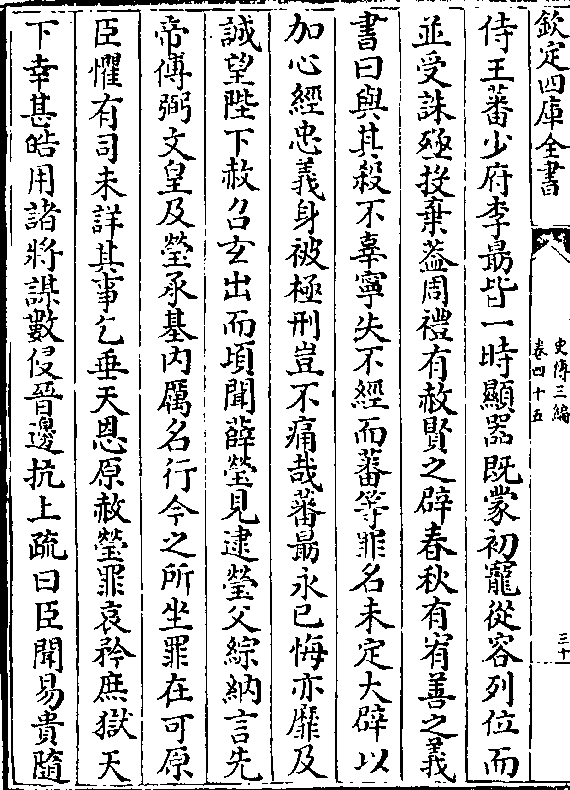 欽定四庫全書
史傳三編
卷四十五
三十
侍王蕃少府李朂皆一時顯器既蒙初寵從容列位而
並受誅殛投棄葢周禮有赦賢之辟春秋有宥善之義
書曰與其殺不辜寧失不經而蕃等罪名未定大辟以
加心經忠義身被極刑豈不痛哉蕃朂永已悔亦靡及
誠望陛下赦召玄出而頃聞薛瑩見逮瑩父綜納言先
帝傅弼文皇及瑩承基内厲名行今之所坐罪在可原
臣懼有司未詳其事乞垂天恩原赦瑩罪哀矜庶獄天
下幸甚皓用諸將謀數侵晉邊抗上疏曰臣聞易貴隨